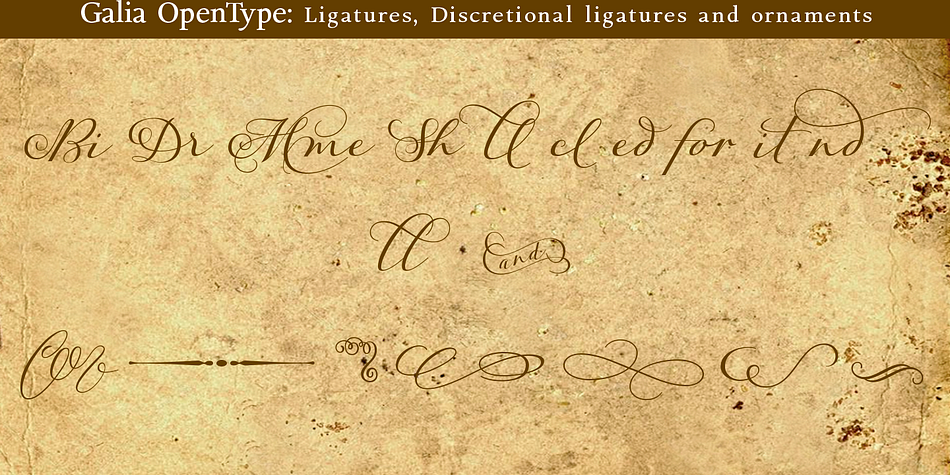 Galia OpenType: Ligatures, Discretional ligatures and ornaments
Bi Dr Mme Sh ll cl ed for it nd
ll and